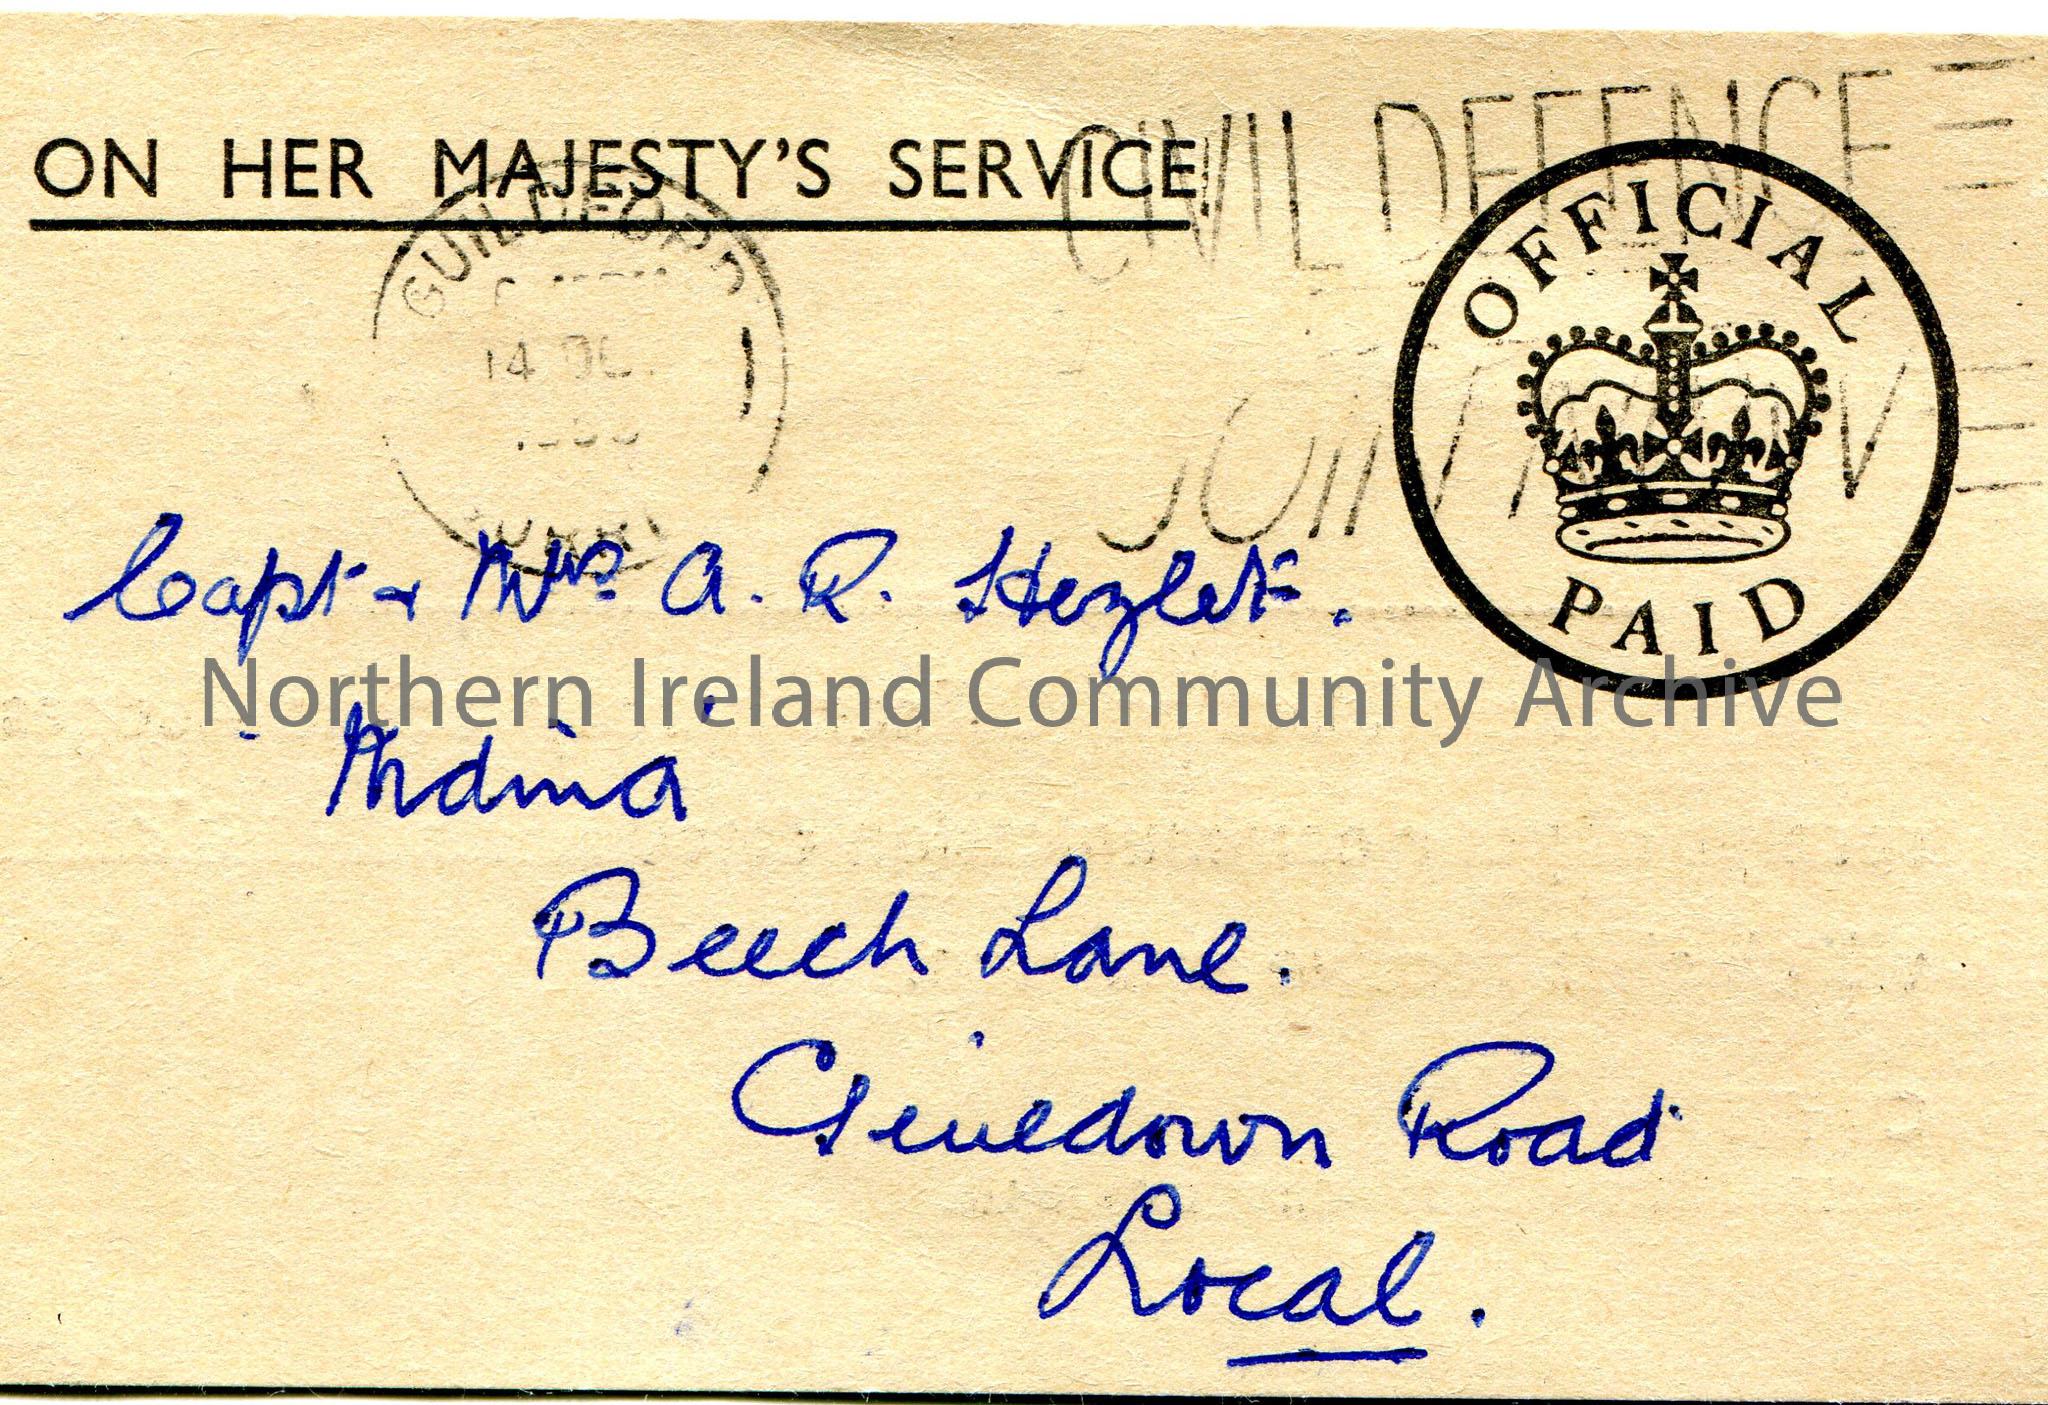 ON HER MAJESTY'S SERVICE
CIVIL DEFENCE
OFFICIAL
GUILDFORD
14 DE
JOIN NOW
PAID
Capt & Mrs. A. R. Hezlet.
'Mdina'
Northern Ireland Community Archive
Beech Lane.
Road
Local.